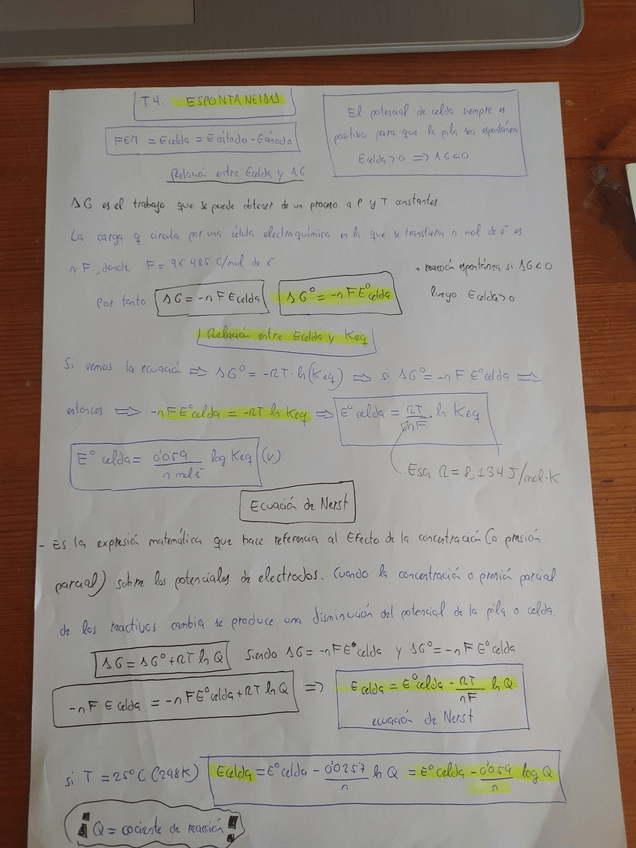 T4. ESPONTANEIDAD
FEM = Ecelda = Ecátodo - Eánodo
El potencial de celda siempre es
positivo para que la pila sea espontánea
Ecelda > 0 => ΔG < 0
Relación entre Ecelda y ΔG
ΔG es el trabajo que se puede obtener de un proceso a P y T constantes
La carga q circula por una célula electroquímica en la que se transfieren n mol de e⁻ es
n·F, donde F = 96485 C/mol de e⁻
• reacción espontánea si ΔG < 0
luego Ecelda > 0
por tanto ΔG = -nFEcelda ΔG° = -nFE°celda
Relación entre Ecelda y Keq
Si vemos la ecuación => ΔG° = -RT·ln(Keq) => si ΔG° = -nFE°celda =>
entonces => -nFE°celda = -RT ln Keq => E°celda = RT/nF · ln Keq
E° celda = 0'059/n mol e⁻ log Keq (V)
Esa R = 8,134 J/mol·K
Ecuación de Nerst
- Es la expresión matemática que hace referencia al Efecto de la concentración (o presión
parcial) sobre los potenciales de electrodos. Cuando la concentración o presión parcial
de los reactivos cambia se produce una disminución del potencial de la pila o celda.
ΔG = ΔG° + RT ln Q siendo ΔG = -nFE°celda y ΔG° = -nFE°celda
-nFEcelda = -nFE°celda + RT ln Q => Ecelda = E°celda - RT/nF ln Q
ecuación de Nerst
si T = 25°C (298K) Ecelda = E°celda - 0'0257/n ln Q = E°celda - 0'059/n log Q
¡Q = cociente de reacción!